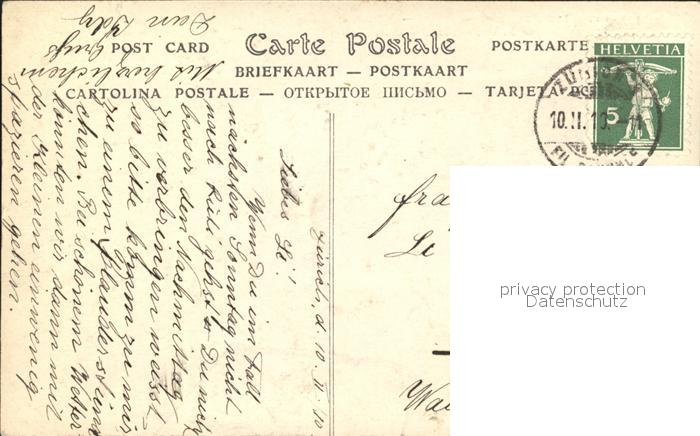 POST CARD Carte Postale POSTKARTE
BRIEFKAART — POSTKAART
CARTOLINA POSTALE — ОТКРЫТОЕ ПИСЬМО — TARJETA PO
HELVETIA
5
10.II.10.-11
Zürich, d. 10. II. 10
Liebes Li!
Wenn Du im Fall
nächsten Sonntag nicht
nach gehst & Du nichts
besser den Nachmittag
zu verbringen weisst
so bitte komm zu mir
zu einem Plauderstünd-
chen. Bei schönem Wetter
könnten wir dann mit
der Kleinen ein wenig
spazieren gehen.
Mit herzlichem
Gruss
Dein
Fra
Li
Wa
privacy protection
Datenschutz